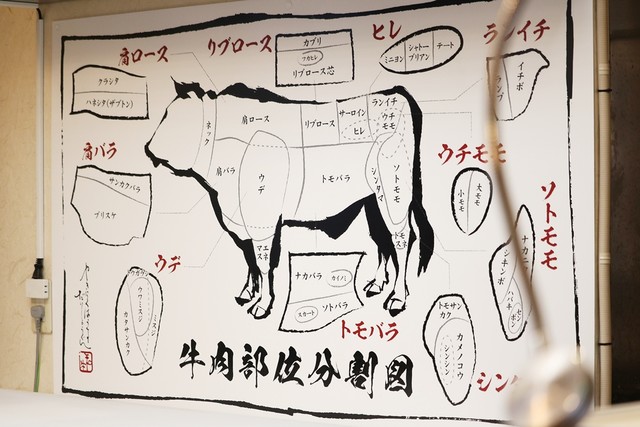 肩ロース
クラシタ
ハネシタ(ザブトン)
リブロース
カブリ
リブロース芯
ヒレ
ミニヨン
シャトー
ブリアン
テート
ランイチ
イチボ
ランプ
肩バラ
サンカクバラ
ブリスケ
ネック
肩ロース
リブロース
サーロイン
ヒレ
ランイチ
ウチモモ
肩バラ
ウデ
トモバラ
シンタマ
ソトモモ
マエスネ
トモスネ
ウチモモ
小モモ
大モモ
ソトモモ
ナカニク
シキンボ
ハバキ
センボン
ウデ
ウワミスジ
ミスジ
カタサンカク
トモバラ
ナカバラ
カイノミ
スカート
ソトバラ
トモサンカク
カメノコウ
シンシン
シン
牛肉部位分割図